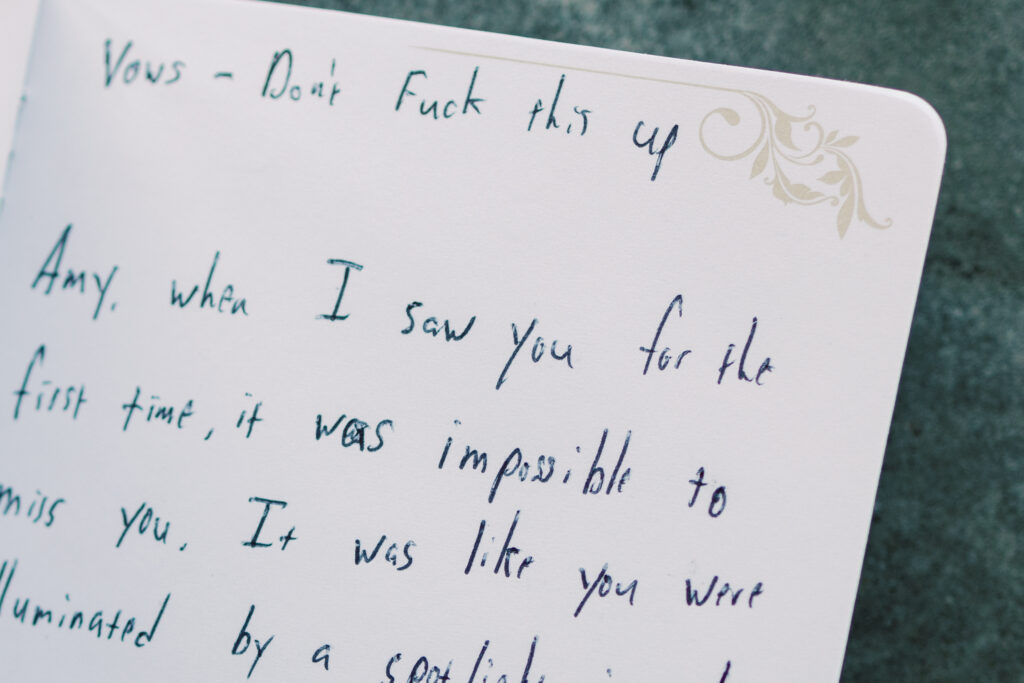 Vows - Don't Fuck this up
Amy, when I saw you for the
first time, it was impossible to
miss you. It was like you were
illuminated by a spotlight